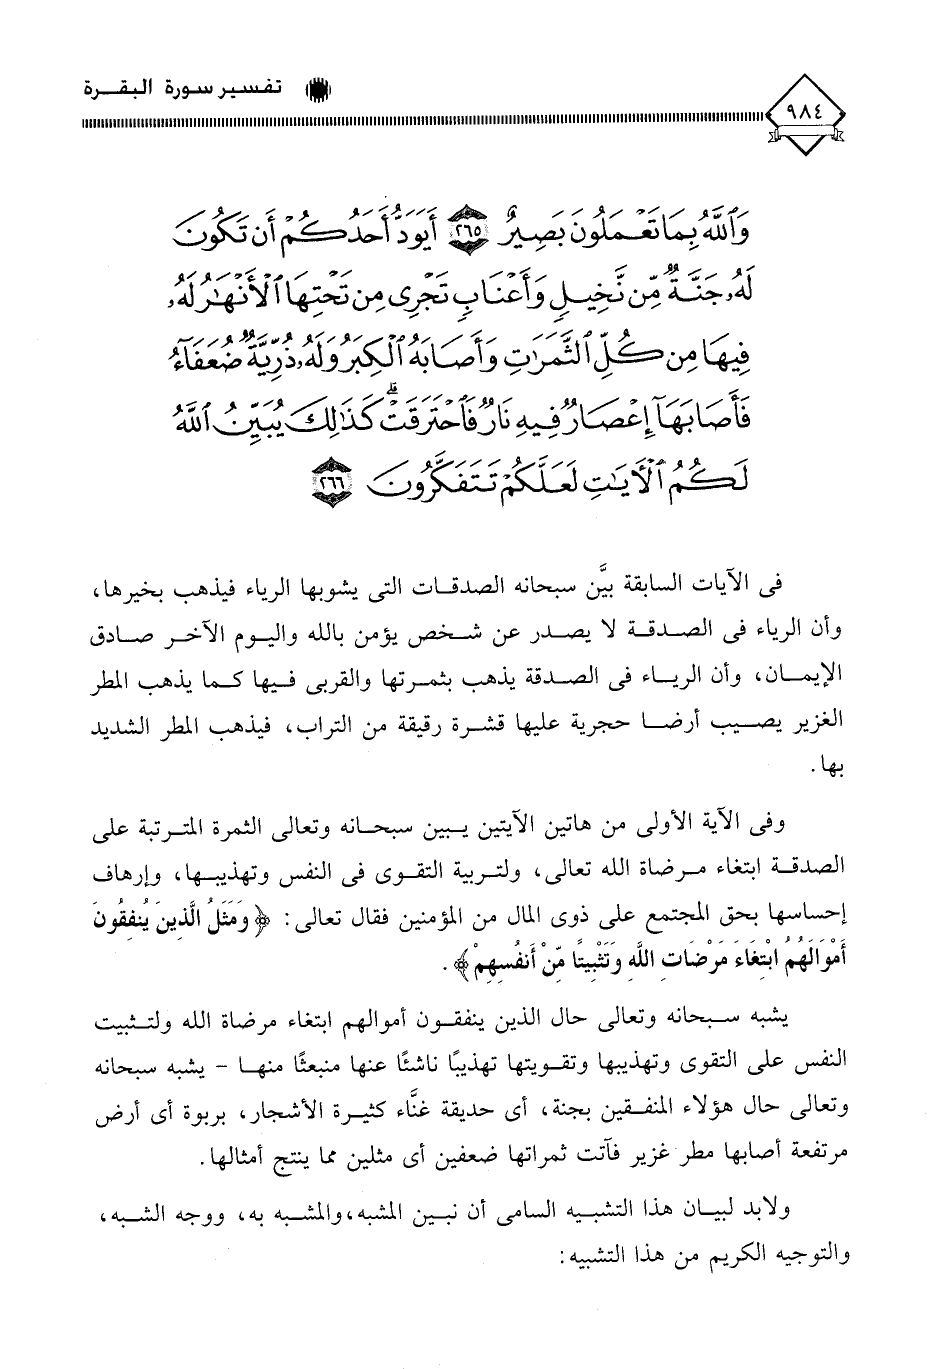 تفسير سورة البقرة
٩٨٤
وَٱللَّهُ بِمَا تَعْمَلُونَ بَصِيرٌ ٢٦٥ أَيَوَدُّ أَحَدُكُمْ أَن تَكُونَ
لَهُۥ جَنَّةٌ مِّن نَّخِيلٍ وَأَعْنَابٍ تَجْرِى مِن تَحْتِهَا ٱلْأَنْهَٰرُ لَهُۥ
فِيهَا مِن كُلِّ ٱلثَّمَرَٰتِ وَأَصَابَهُ ٱلْكِبَرُ وَلَهُۥ ذُرِّيَّةٌ ضُعَفَآءُ
فَأَصَابَهَآ إِعْصَارٌ فِيهِ نَارٌ فَٱحْتَرَقَتْ ۗ كَذَٰلِكَ يُبَيِّنُ ٱللَّهُ
لَكُمُ ٱلْآيَٰتِ لَعَلَّكُمْ تَتَفَكَّرُونَ ٢٦٦
فى الآيات السابقة بيَّن سبحانه الصدقات التى يشوبها الرياء فيذهب بخيرها،
وأن الرياء فى الصدقة لا يصدر عن شخص يؤمن بالله واليوم الآخر صادق
الإيمان، وأن الرياء فى الصدقة يذهب بثمرتها والقربى فيها كما يذهب المطر
الغزير يصيب أرضا حجرية عليها قشرة رقيقة من التراب، فيذهب المطر الشديد
بها.
وفى الآية الأولى من هاتين الآيتين يبين سبحانه وتعالى الثمرة المترتبة على
الصدقة ابتغاء مرضاة الله تعالى، ولتربية التقوى فى النفس وتهذيبها، وإرهاف
إحساسها بحق المجتمع على ذوى المال من المؤمنين فقال تعالى: ﴿وَمَثَلُ الَّذِينَ يُنفِقُونَ
أَمْوَالَهُمُ ابْتِغَاءَ مَرْضَاتِ اللَّهِ وَتَثْبِيتًا مِّنْ أَنفُسِهِمْ﴾.
يشبه سبحانه وتعالى حال الذين ينفقون أموالهم ابتغاء مرضاة الله ولتثبيت
النفس على التقوى وتهذيبها وتقويتها تهذيبًا ناشئًا عنها منبعثًا منها - يشبه سبحانه
وتعالى حال هؤلاء المنفقين بجنة، أى حديقة غنَّاء كثيرة الأشجار، بربوة أى أرض
مرتفعة أصابها مطر غزير فآتت ثمراتها ضعفين أى مثلين مما ينتج أمثالها.
ولابد لبيان هذا التشبيه السامى أن نبين المشبه، والمشبه به، ووجه الشبه،
والتوجيه الكريم من هذا التشبيه: